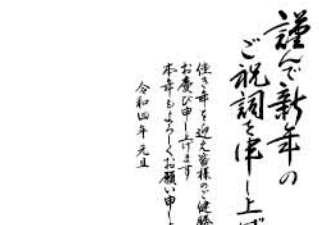 謹んで新年の
ご祝詞を申し上げ
佳き年を迎え皆様のご健勝
お慶び申し上げます
本年もよろしくお願い申し上
令和四年 元旦